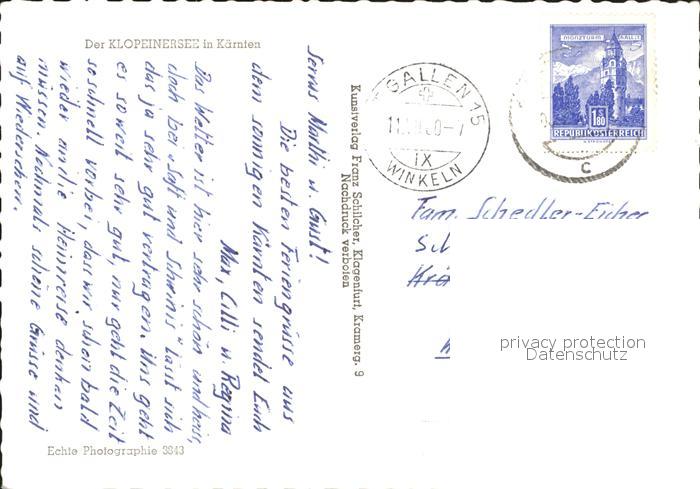 Der KLOPEINERSEE in Kärnten
Servus Marthi u. Gust!
Die besten Feriengrüsse aus
dem sonnigen Kärnten sendet Euch
Max, Cilli u. Regina
Das Wetter ist hier sehr schön und heiss,
doch bei „Saft und" lässt sich
das ja sehr gut vertragen. Uns geht
es soweit sehr gut, nur geht die Zeit
so schnell vorbei, dass wir schon bald
wieder an die Heimreise denken
müssen. Nochmals schöne Grüsse und
auf Wiedersehen.
Echte Photographie 3843
Kunstverlag Franz Schilcher, Klagenfurt, Kramerg. 9
Nachdruck verboten
GALLEN 15
IX
WINKELN
MÜNZTURM HALL i. T.
1.80
REPUBLIK ÖSTERREICH
C
Fam. Schedler-Eicher
privacy protection
Datenschutz